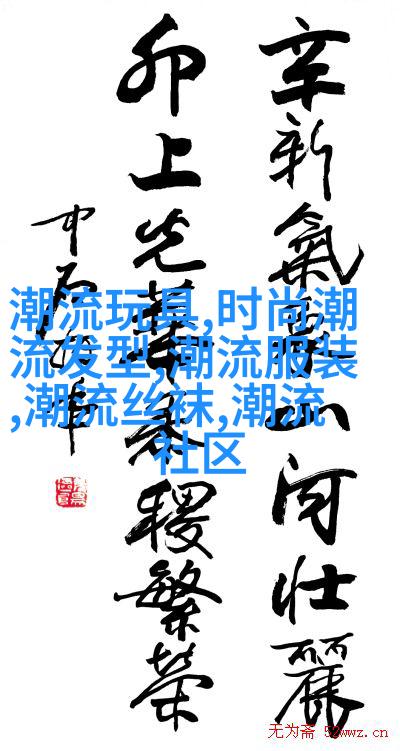 辛新氣山河壮麗
卯上光華黍稷繁荣
中石
潮流玩具,时尚潮
流发型,潮流服装
,潮流丝袜,潮流
社区
无为斋 52wwz.cn